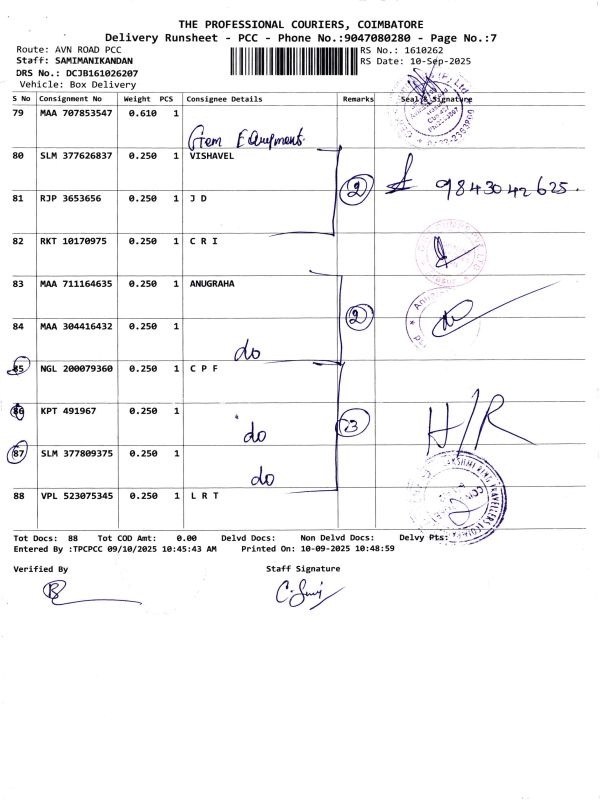 THE PROFESSIONAL COURIERS, COIMBATORE
Delivery Runsheet - PCC - Phone No.:9047080280 - Page No.:7
Route: AVN ROAD PCC RS No.: 1610262
Staff: SAMIMANIKANDAN RS Date: 10-Sep-2025
DRS No.: DCJB161026207
Vehicle: Box Delivery
S No Consignment No Weight PCS Consignee Details Remarks Seal & Signature
79 MAA 707853547 0.610 1
Gem Equipments
80 SLM 377626837 0.250 1 VISHAVEL
2 9843042625.
81 RJP 3653656 0.250 1 J D
82 RKT 10170975 0.250 1 C R I
83 MAA 711164635 0.250 1 ANUGRAHA
84 MAA 304416432 0.250 1 2
do
85 NGL 200079360 0.250 1 C P F
86 KPT 491967 0.250 1
do 23 H/R
87 SLM 377809375 0.250 1
do
88 VPL 523075345 0.250 1 L R T
Tot Docs: 88 Tot COD Amt: 0.00 Delvd Docs: Non Delvd Docs: Delvy Pts:
Entered By :TPCPCC 09/10/2025 10:45:43 AM Printed On: 10-09-2025 10:48:59
Verified By Staff Signature